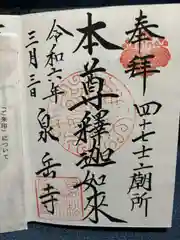 奉拝
四十七士廟所
本尊釋迦如来
令和六年
三月三日
泉岳寺
「ご朱印」について